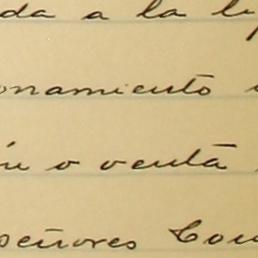 da a la
onamiento
o venta
señores